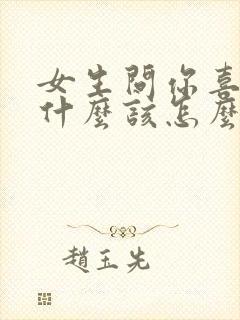 女生問你喜
什麼該怎麼
趙玉先